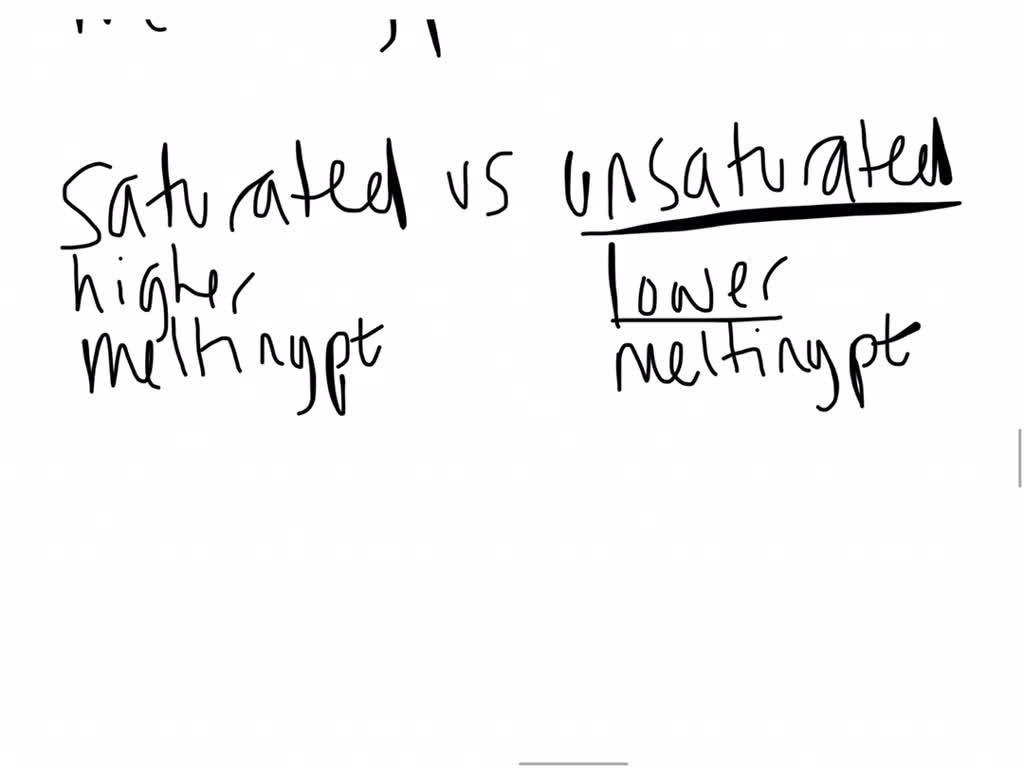 saturated vs unsaturated
higher lower
meltingpt meltingpt